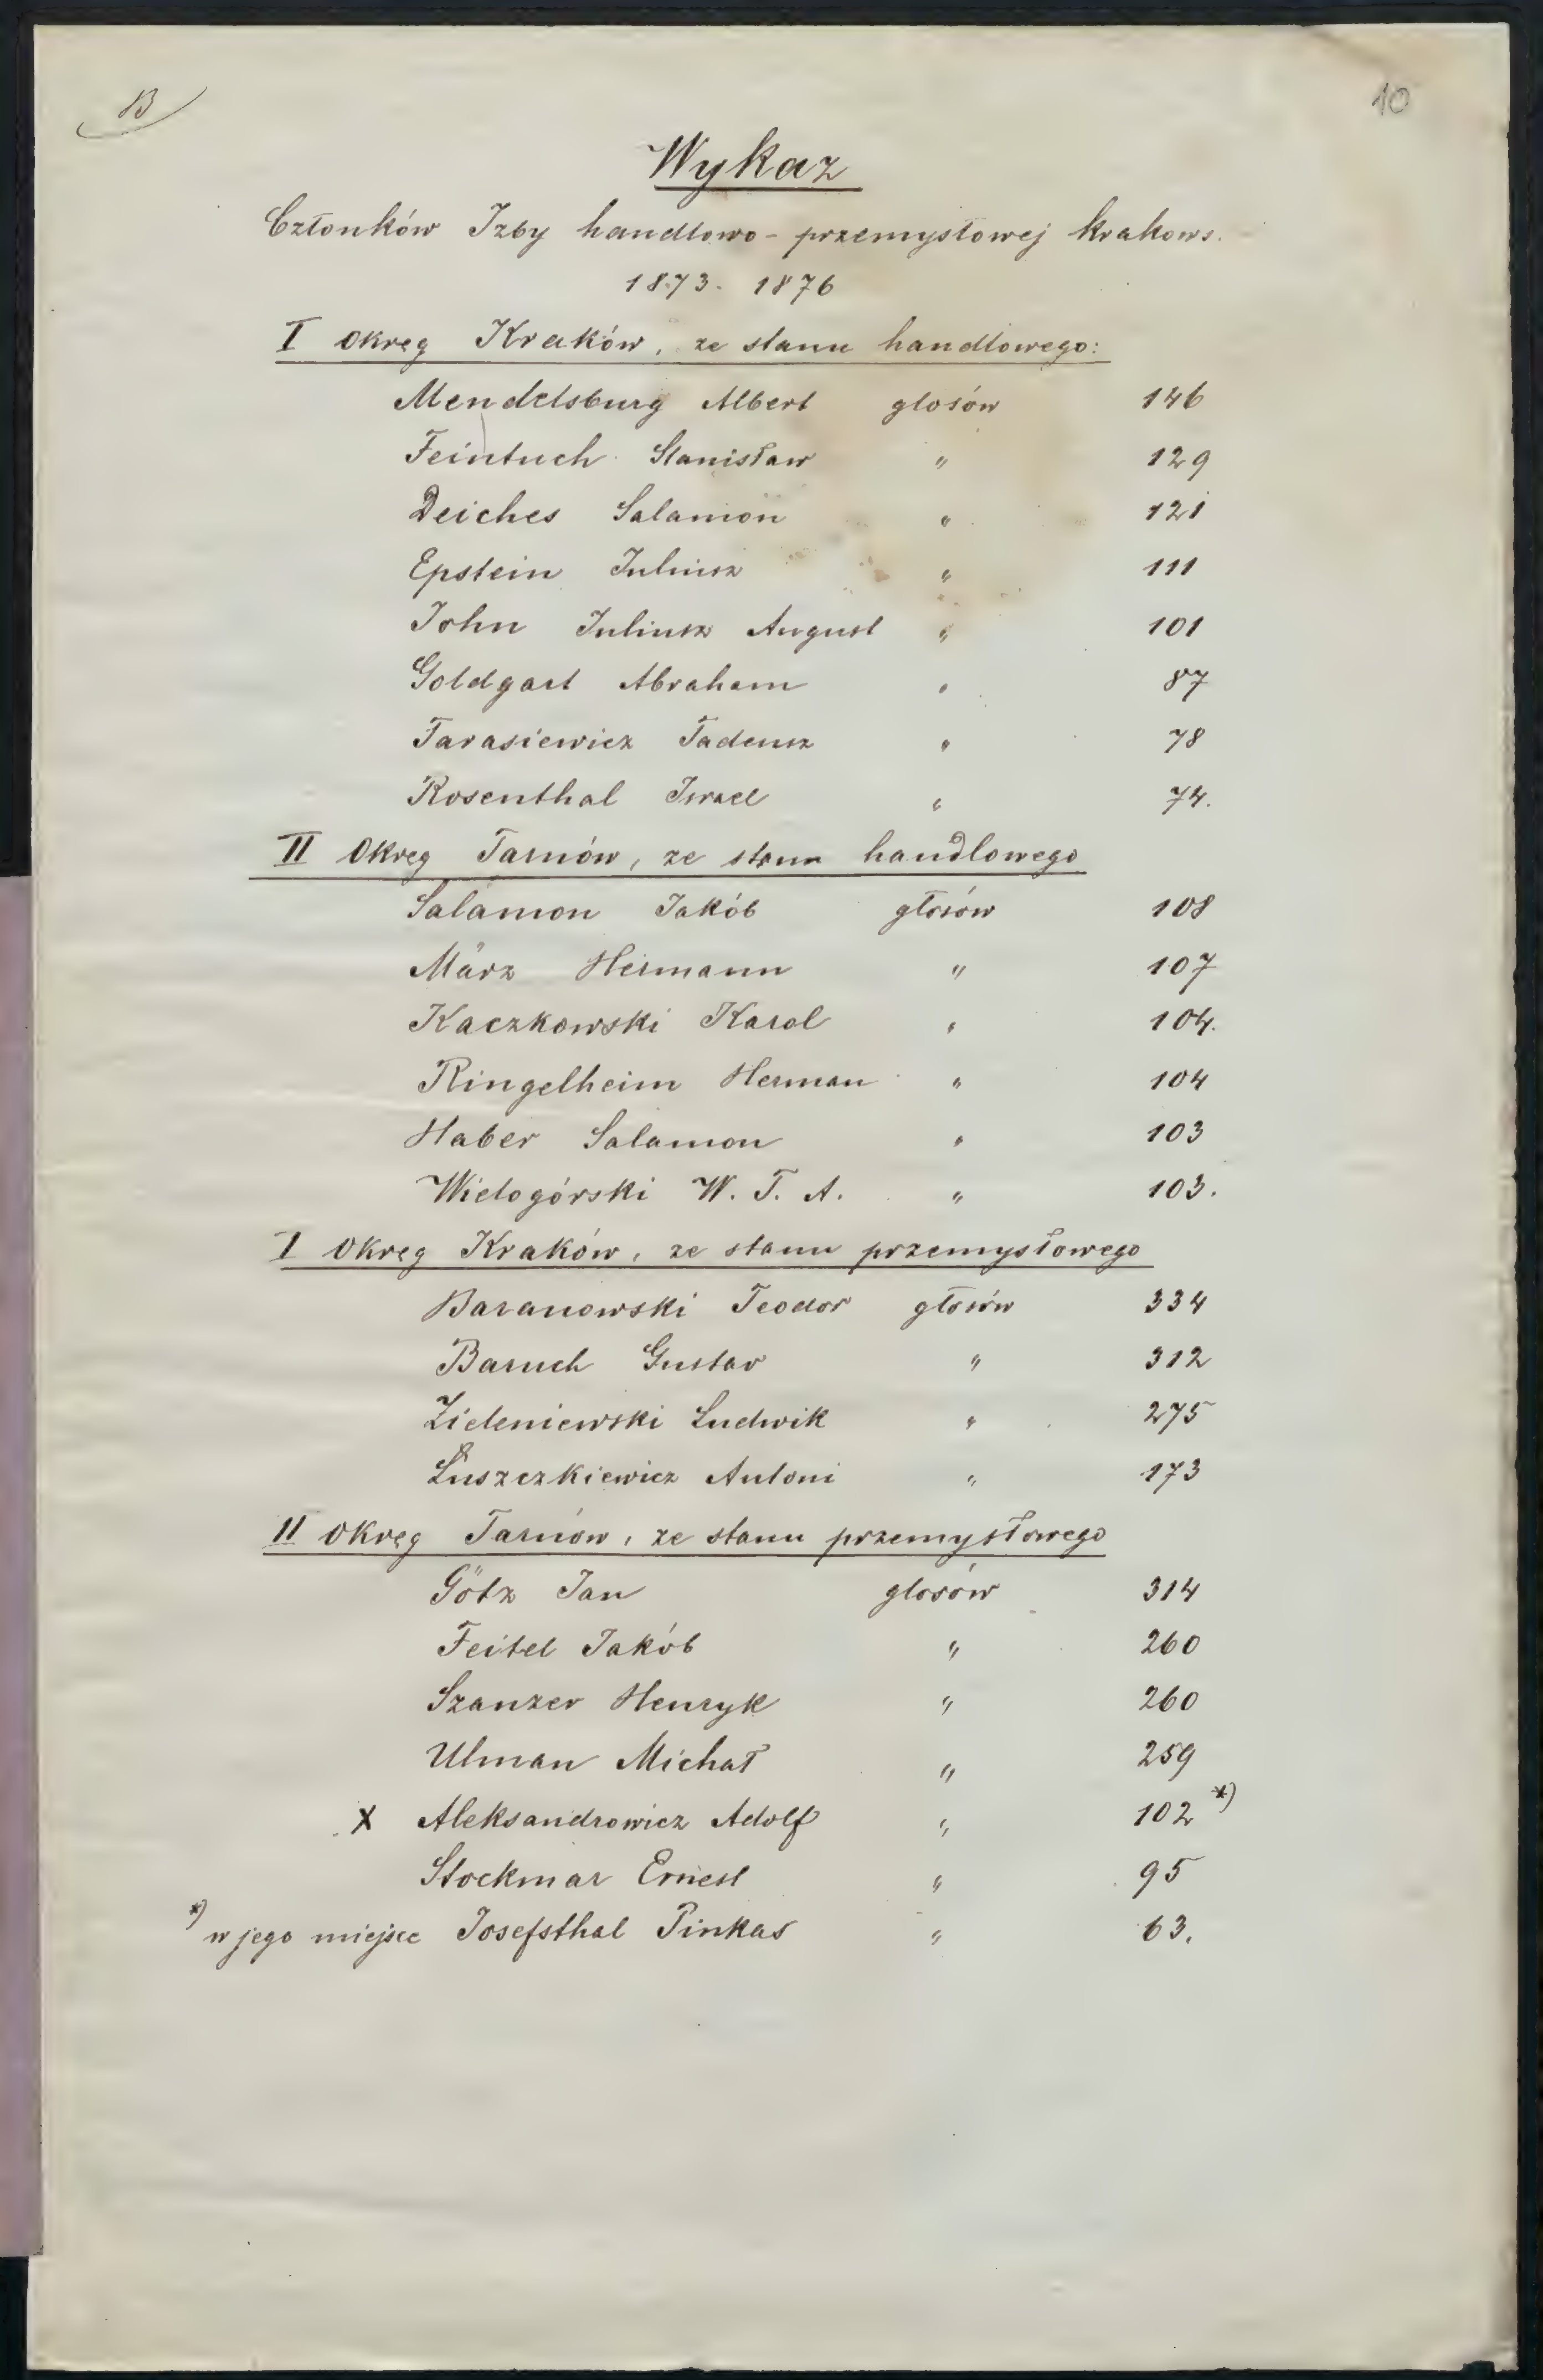 B
10
Wykaz
Członków Izby handlowo-przemysłowej krakows.
1873. 1876
I okręg Kraków, ze stanu handlowego:
Mendelsburg Albert głosów 146
Feintuch Stanisław " 129
Deiches Salamon " 121
Epstein Juliusz " 111
John Juliusz August " 101
Goldgart Abraham " 87
Tarasiewicz Tadeusz " 78
Rosenthal Israel " 74.
II Okręg Tarnów, ze stanu handlowego
Salamon Jakób głosów 108
März Hermann " 107
Kaczkowski Karol " 104.
Ringelheim Herman " 104
Haber Salamon " 103
Wielogórski W. T. A. " 103.
I Okręg Kraków, ze stanu przemysłowego
Baranowski Teodor głosów 334
Baruch Gustav " 312
Zieleniewski Ludwik " 275
Łuszczkiewicz Antoni " 173
II okręg Tarnów, ze stanu przemysłowego
Götz Jan głosów 314
Feitel Jakób " 260
Szanzer Henryk " 260
Ulman Michał " 259
X Aleksandrowicz Adolf " 102 *)
Stockmar Ernest " 95
*) w jego miejsce Josefsthal Pinkas " 63.